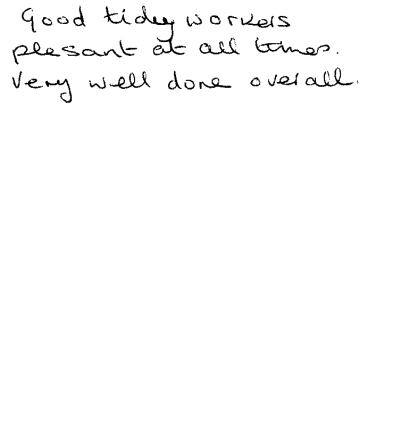 Good tidy workers
plesant at all times.
Very well done overall.